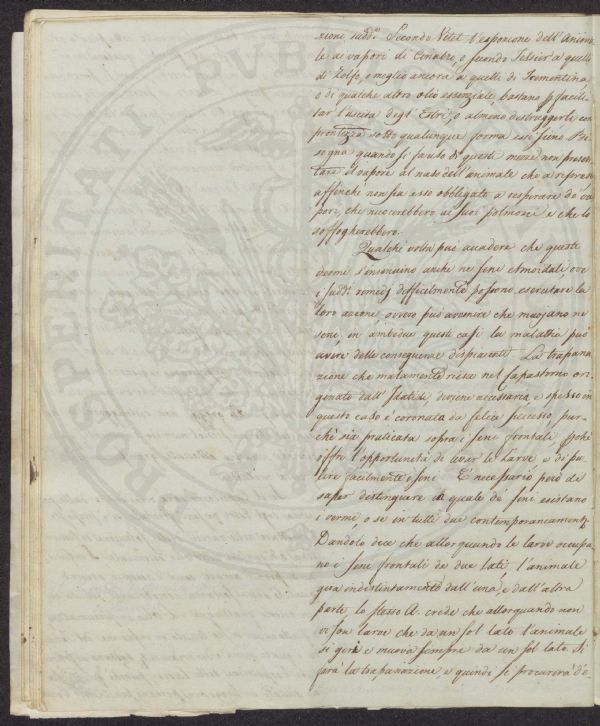 zioni sudd.e Secondo Vitet l'esposizione dell'Anima-
le ai vapori di Cinabro, o secondo Tessier a quelli
di Zolfo, o meglio ancora a quelli di Trementina
o di qualche altro olio essenziale, bastano p facili-
tar l'uscita degl'Estri, o almeno distruggerli con
prontezza sotto qualunque forma essi sieno. Bi-
sogna quando si fa uso di questi mezzi non presen-
tare il vapore al naso dell'animale che a riprese
affinchè non sia esso obbligato a respirare de va-
pori, che nuocerebbero ai suoi polmoni e che lo
soffogherebbero.
Qualche volta può accadere che questi
vermi s'insinuino anche ne seni Etmoidali, ove
i sudd.i rimedj difficilmente possono esercitare la
loro azione, ovvero può avvenire che muojano ne
seni, in ambidue questi casi la malattia può
avere delle conseguenze dispiacenti. La trapana-
zione che malamente riesce nel Capostorno ori-
ginato dall'Idatide, diviene necessaria, e spesso in
questo caso è coronata da felice successo, pur-
chè sia praticata sopra i seni frontali, pchè
offre l'opportunità di levar le Larve, e di pu-
lire facilmente i seni. È necessario però di
saper distinguere in quale de seni esistano
i vermi, o se in tutti due contemporaneamente.
Dandolo dice che allorquando le larve occupa-
no i seni frontali de due lati, l'animale
gira indistintamente dall'una, e dall'altra
parte. lo stesso A. crede che allorquando non
vi son larve che da un sol lato l'animale
si giri e muova sempre da un sol lato. Si
farà la trapanazione, e quindi si procurerà d'e-
PROSPERITATI PUBLICAE